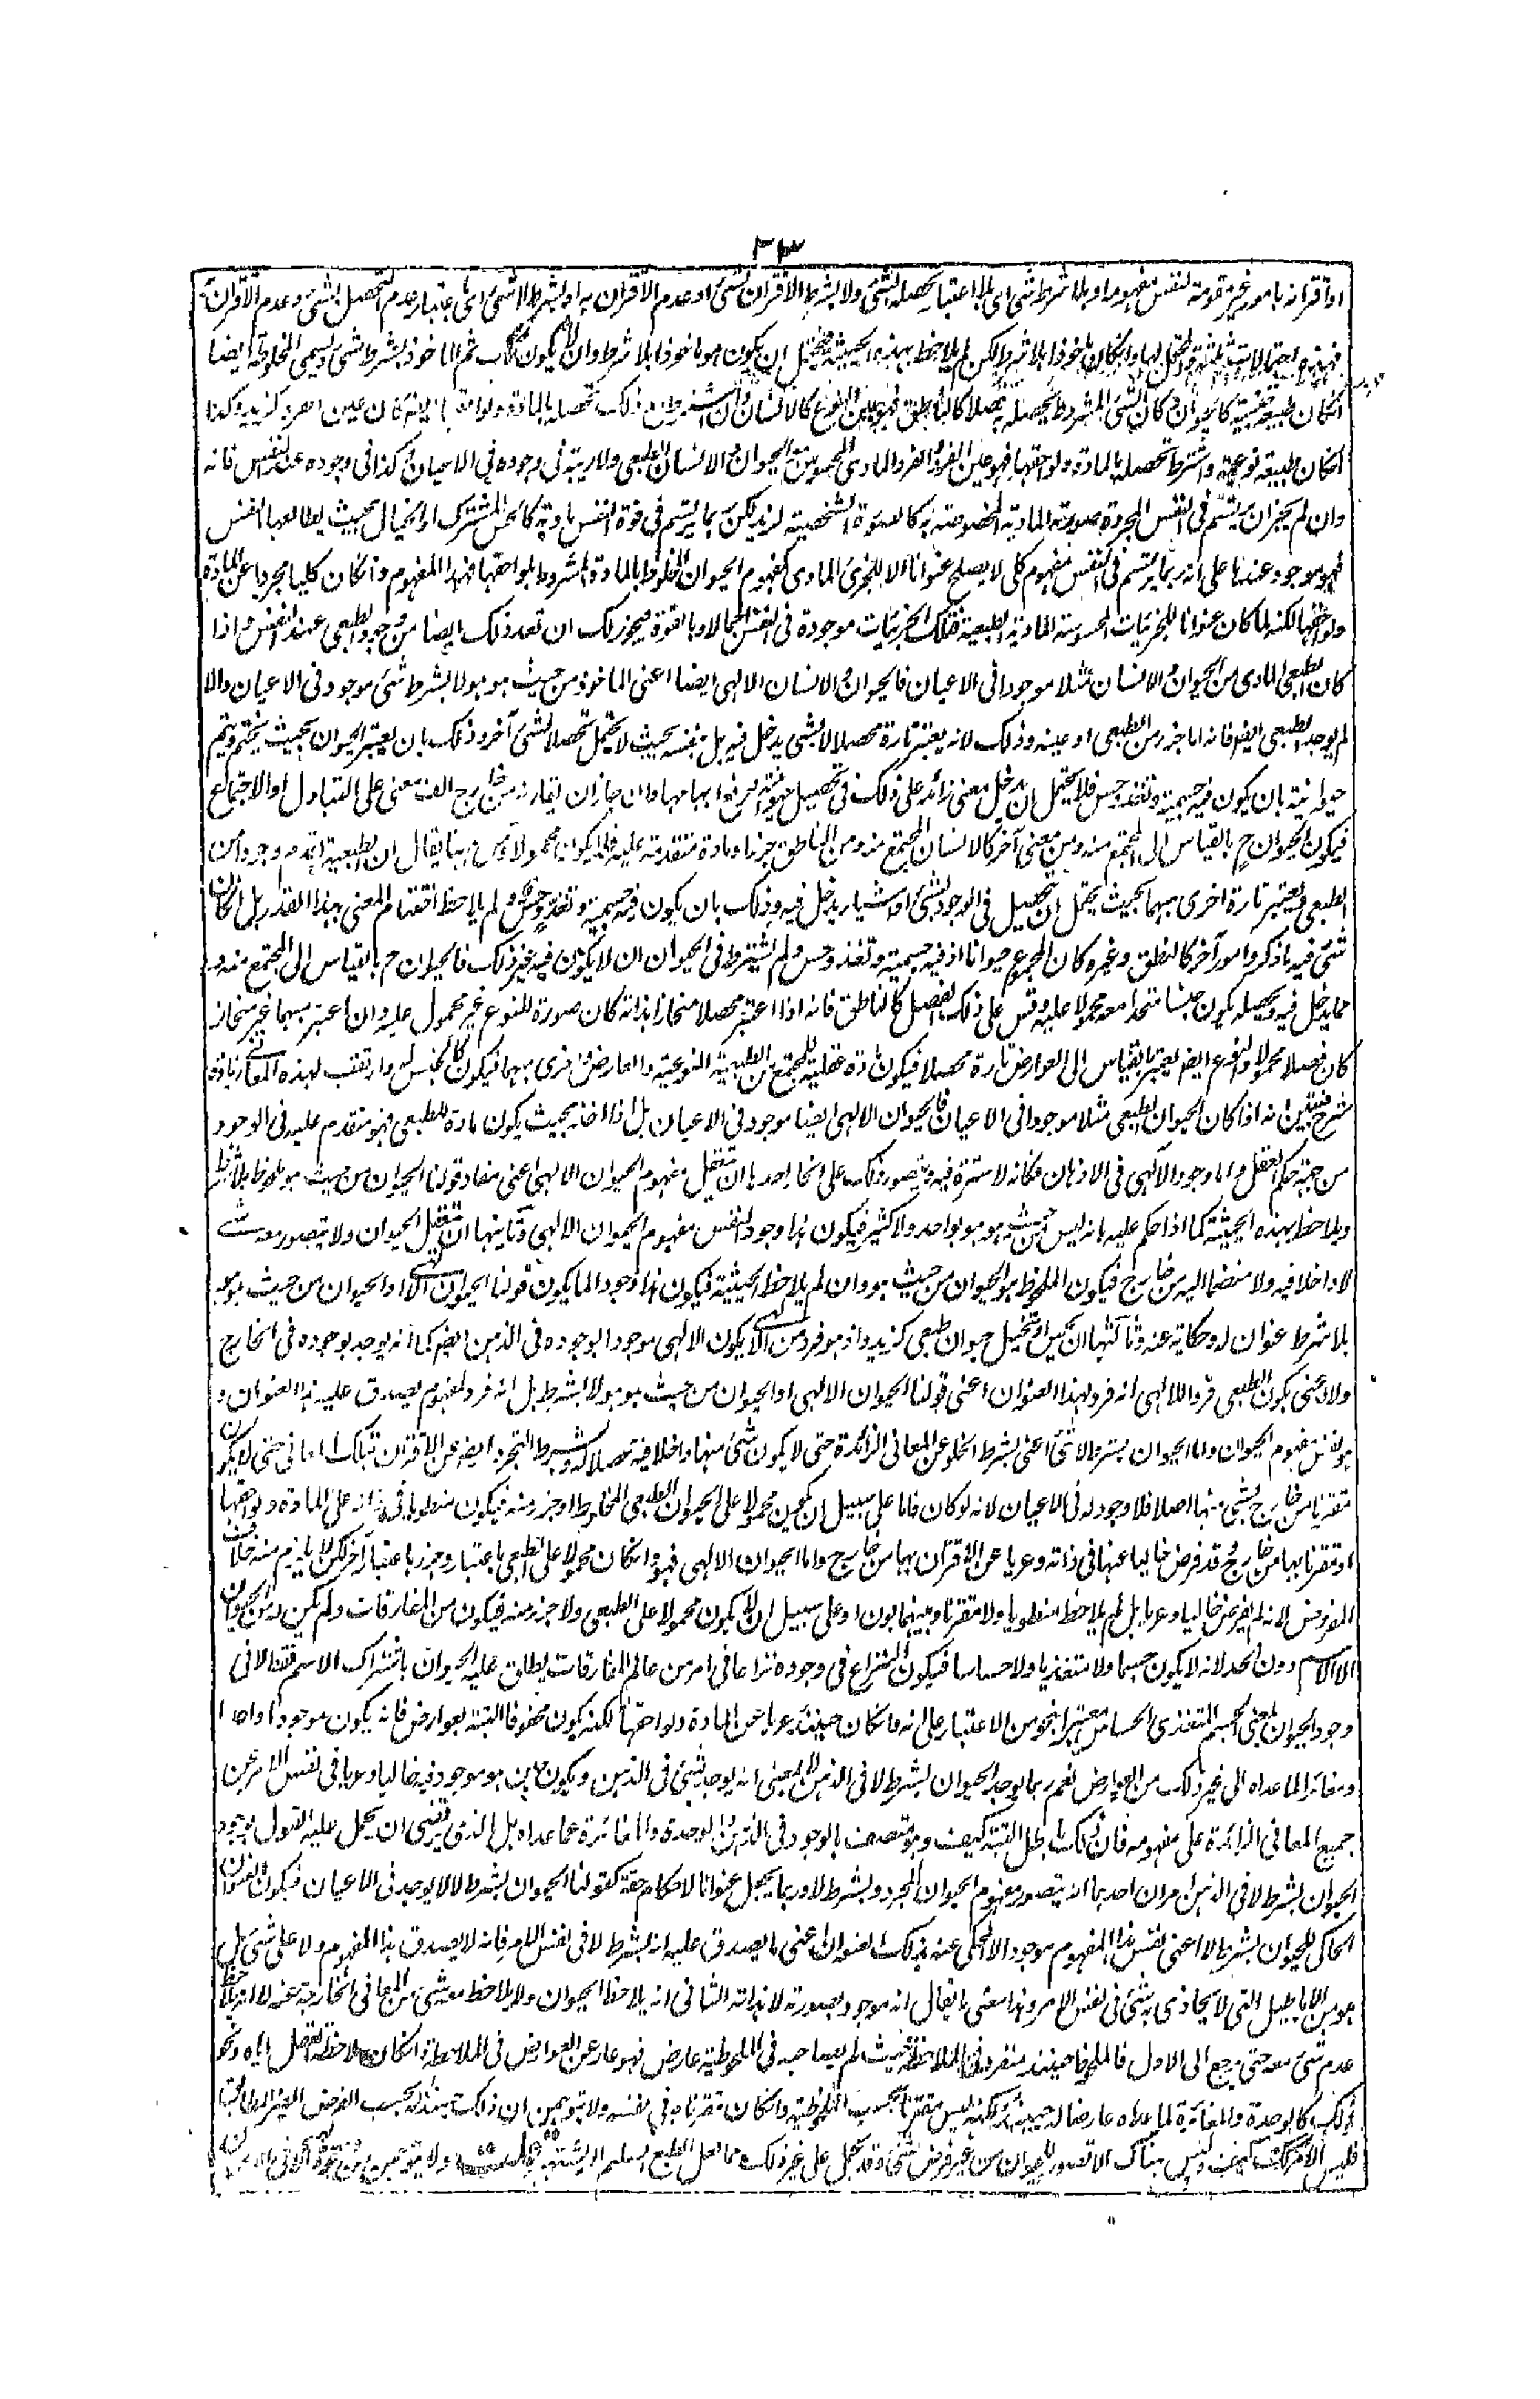 ٣٣
او اقترانه بامور غير مقومة لنفس مفهومه او بلا شرط شئ اى بلا اعتبار تحصله لشئ ولا بشرط الاقتران لشئ او عدم الاقتران به او بشرط لا شئ اى باعتبار عدم التحصل لشئ وعدم الاقتران
فهذه احتمالات ثلثة وان كان ماخوذا بلا شرط لكن لم يلاحظ بهذه الحيثية فيحتمل ان يكون هو ماخوذا بلا شرط وان لا يكون ثم الماخوذ بشرط شئ ويسمى المخلوطة ايضا
انكان طبيعة جنسية كالحيوان كان الشئ المشروط تحصله به فصلا كالناطق فهو عين النوع كالانسان وان اشترط مع ذلك تحصله بالمادة ولواحقها
انكان طبيعة نوعية واشترط تحصله بالمادة ولواحقها فهو عين الفرد والفرد المادى المحسوس من الحيوان والانسان الطبعى ولا ريبة فى وجوده فى الاعيان وكذا فى وجوده عند النفس فانه
وان لم يجز ان يرتسم فى النفس المجردة صورته المادية المخصوصة به كالصورة الشخصية لزيد لكن ربما يرتسم فى قوة النفس مادية كالحس المشترك او الخيال بحيث يطالعها النفس
فهو موجود عندنا على انه ربما يرتسم فى النفس مفهوم كلى لا يصلح عنوانا الا للجزئى المادى كمفهوم الحيوان المخلوط بالمادة المشروط بلواحقها فهذا المفهوم وانكان كليا مجردا عن المادة
ولواحقها لكنه لما كان عنوانا للجزئيات المحسوسة المادية الطبعية فتلك الجزئيات موجودة فى النفس اجمالا وبالقوة فيجوز لك ان تعد ذلك ايضا من وجود الطبعى عند النفس واذا
كان الطبعى المادى من الحيوان والانسان مثلا موجودا فى الاعيان فالحيوان والانسان الالهى ايضا اعنى الماخوذ من حيث هو هو لا بشرط شئ موجود فى الاعيان والا
لم يوجد الطبعى ايضا فانه اما جزء من الطبعى او عينه وذلك لانه يعتبر تارة محصلا لا بشئ يدخل فيه بل بنفسه بحيث لا يحتمل تحصلا لشئ آخر وذلك بان يعتبر الحيوان بحيث يختم ويتم
حيوانيته بان يكون فيه جسمية وتغذ وحس فلا يحتمل ان يدخل معنى زائد على ذلك فى تحصيل هويته ورفع ابهامها وان جاز ان يقارنه من خارج الف معنى على التبادل او الاجتماع
فيكون الحيوان ح بالقياس الى المجتمع منه ومن معنى آخر كالانسان المجتمع منه ومن الناطق جزءا ومادة متقدمة عليه فلا يكون محمولا ومن ههنا يقال ان الطبيعة اقدم وجودا من
الطبعى ويعتبر تارة اخرى مبهما بحيث يحتمل ان يتحصل فى الوجود بشئ او اشياء يدخل فيه وذلك بان يكون فيه جسمية وتغذ وحس ولم يلاحظ اختتام المعنى بهذا القدر بل انكان
شئ فيه ما ذكر وامور آخر كالنطق وغيره كان المجموع حيوانا اذ فيه جسمية وتغذ وحس ولم يشترط فى الحيوان ان لا يكون فيه غير ذلك فالحيوان ح بالقياس الى المجتمع منه و
مما يدخل فيه ويحصله يكون جنسا متحدا معه محمولا عليه وقس على ذلك الفصل كالناطق فانه اذا اعتبر محصلا منحازا بذاته كان صورة للنوع غير محمول عليه وان اعتبر مبهما غير منحاز
كان فصلا محمولا والنوع ايضا يعتبر بالقياس الى العوارض تارة محصلا فيكون مادة عقلية للمجتمع من الطبيعة النوعية والعارض واخرى مبهما فيكون كالجنس له وارتقب لهذه المعانى زيادة
شرح فتبين انه اذا كان الحيوان الطبعى مثلا موجودا فى الاعيان فالحيوان الالهى ايضا موجود فى الاعيان بل اذا اخذ بحيث يكون مادة للطبعى فهو متقدم عليه فى الوجود
من جهة حكم العقل واما وجود الالهى فى الاذهان فكانه لا سترة فيه ويتصور ذلك على انحاء احدها ان يتعقل مفهوم الحيوان الالهى اعنى مفاد قولنا الحيوان من حيث هو ملحوظا بلا شرط
ويلاحظ بهذه الحيثية كما اذا حكم عليه بانه ليس من حيث هو هو بواحد ولا كثير فيكون هذا وجود النفس مفهوم الحيوان الالهى وثانيها ان يتعقل الحيوان ولا يتصور معه شئ
لا داخلا فيه ولا منضما اليه من خارج فيكون الملحوظ هو الحيوان من حيث هو وان لم يلاحظ الحيثية فيكون هذا وجودا لما يكون قولنا الحيوان الالهى او الحيوان من حيث هو هو
بلا شرط عنوان له وحكاية عنه وثالثها ان يحس او يتخيل حيوان طبعى كزيد واذ هو فرد من الالهى يكون الالهى موجودا بوجوده فى الذهن ايضا كما انه يوجد بوجوده فى الخارج
ولا نعنى بكون الطبعى فردا للالهى انه فرد لهذا العنوان اعنى قولنا الحيوان الالهى او الحيوان من حيث هو هو لا بشرط بل انه فرد لمفهوم يصدق عليه هذا العنوان و
هو نفس مفهوم الحيوان واما الحيوان بشرط لا شئ اعنى بشرط الخلو عن المعانى الزائدة حتى لا يكون شئ منها داخلا فيه محصلا له وبشرط التجرد ايضا عن الاقتران بتلك المعانى حتى لا يكون
مقترنا من خارج بشئ منها اصلا فلا وجود له فى الاعيان لانه لو كان فاما على سبيل ان يكون محمولا على الحيوان الطبعى المخلوط او جزء منه فيكون منطويا فى ذاته على المادة ولواحقها
او مقترنا بها من خارج وقد فرض خاليا عنها فى ذاته وعريا عن الاقتران بها من خارج واما الحيوان الالهى فهو وانكان محمولا على الطبعى باعتبار وجزءا باعتبار آخر لكن لا يلزم منه خلاف
المفروض لانه لم يفرض خاليا وعريا بل لم يلاحظ منطويا ولا مقترنا وبينهما بون او على سبيل ان لا يكون محمولا على الطبعى ولا جزء منه فيكون من المفارقات ولم يكن له من الحيوان
الا الاسم دون الحد لانه لا يكون جسما ولا متغذيا ولا حساسا فيكون النزاع فى وجوده نزاعا فى امر من عالم المفارقات يطلق عليه الحيوان باشتراك الاسم فقط لا فى
وجود الحيوان بمعنى الجسم المتغذى الحساس معتبرا بنحو من الاعتبار على انه وانكان حينئذ عريا عن المادة ولواحقها لكنه يكون محفوفا البتة بعوارض فانه يكون موجودا واحدا
ومغائرا لما عداه الى غير ذلك من العوارض نعم ربما يوجد الحيوان بشرط لا فى الذهن لا بمعنى انه يوجد شئ فى الذهن ويكون حين هو موجود فيه خاليا وعريا فى نفس الامر عن
جميع المعانى الزائدة على مفهومه فان ذلك باطل البتة كيف وهو متصف بالوجود فى الذهن والوحدة والمغائرة عما عداه بل الذى ينبغى ان يحمل عليه القول بوجود
الحيوان بشرط لا فى الذهن امران احدهما انه يتصور مفهوم الحيوان المجرد وبشرط لا وربما يجعل عنوانا لاحكام حقة كقولنا الحيوان بشرط لا لا يوجد فى الاعيان فيكون العنوان
الحاكى للحيوان بشرط لا اعنى نفس هذا المفهوم موجودا لا المحكى عنه بذلك العنوان اعنى ما يصدق عليه انه بشرط لا فى نفس الامر فانه لا يصدق هذا المفهوم ولا على شئ بل
هو من الاباطيل التى لا يحاذى بها شئ فى نفس الامر وهذا معنى ما يقال انه موجود بصورته لا بذاته الثانى انه يلاحظ الحيوان ولا يلاحظ معه شئ من المعانى الخارجة عنه لا انه يلاحظ
عدم شئ معه حتى يرجع الى الاول فالملحوظ حينئذ منفرد فى الملاحظة بحيث لم يصاحبه فى الملحوظية عارض فهو عار عن العوارض فى الملاحظة وانكان ملاحظة العقل اياه ونحو
ذلك كالوحدة والمغائرة لما عداه عارضا له حينئذ لكنه ليس مقترنا به بحسب الملحوظية وانكان مقترنا به فى نفسه ولا تتوهمن ان ذلك بحسب الفرض الغير المطابق
فليس الامر كذلك كيف وليس هناك الا تصور للحيوان من غير فرض شئ وقد يحمل على غير ذلك مما لعل الطبع السليم لا يشتهيه